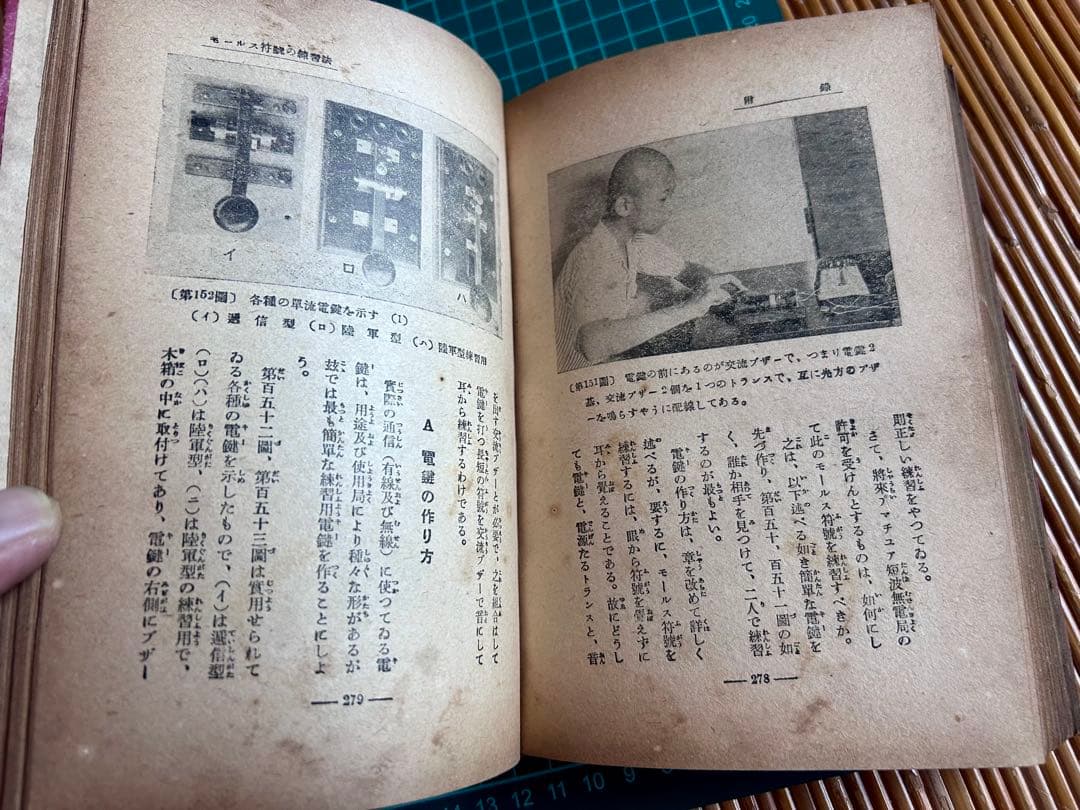 附錄
〔第151圖〕 電鍵の前にあるのが交流ブザーで、つまり電鍵2
基、交流ブザー2個を1つのトランスで、互に先方のブザ
ーを鳴らすやうに配線してある。
則正しい練習をやつてゐる。
さて、將來アマチユア短波無電局の
許可を受けんとするものは、如何にし
て此のモールス符號を練習すべきか。
之は、以下述べる如き簡單な電鍵を
先づ作り、第百五十、百五十一圖の如
く、誰か相手を見つけて、二人で練習
するのが最もよい。
電鍵の作り方は、章を改めて詳しく
述べるが、要するに、モールス符號を
練習するには、眼から符號を覺えずに
耳から覺えることである。故にどうし
ても電鍵と、電源たるトランスと、音
— 278 —
モールス符號の練習法
イ
ロ
ハ
〔第152圖〕 各種の單流電鍵を示す (1)
(イ)遞信型 (ロ)陸軍型 (ハ)陸軍型練習用
を出す交流ブザーとが必要で、之を組合はして
電鍵を打つ長短の符號を交流ブザーで音にして
耳から練習するわけである。
A 電鍵の作り方
實際の通信(有線及び無線)に使つてゐる電
鍵は、用途及び使用局により種々な形があるが
玆では最も簡單な練習用電鍵を作ることにしよ
う。
第百五十二圖、第百五十三圖は實用せられて
ゐる各種の電鍵を示したもので、(イ)は遞信型
(ロ)(ハ)は陸軍型、(ニ)は陸軍型の練習用で、
木箱の中に取付けてあり、電鍵の右側にブザー
— 279 —
20
13
12
11
10
9
8